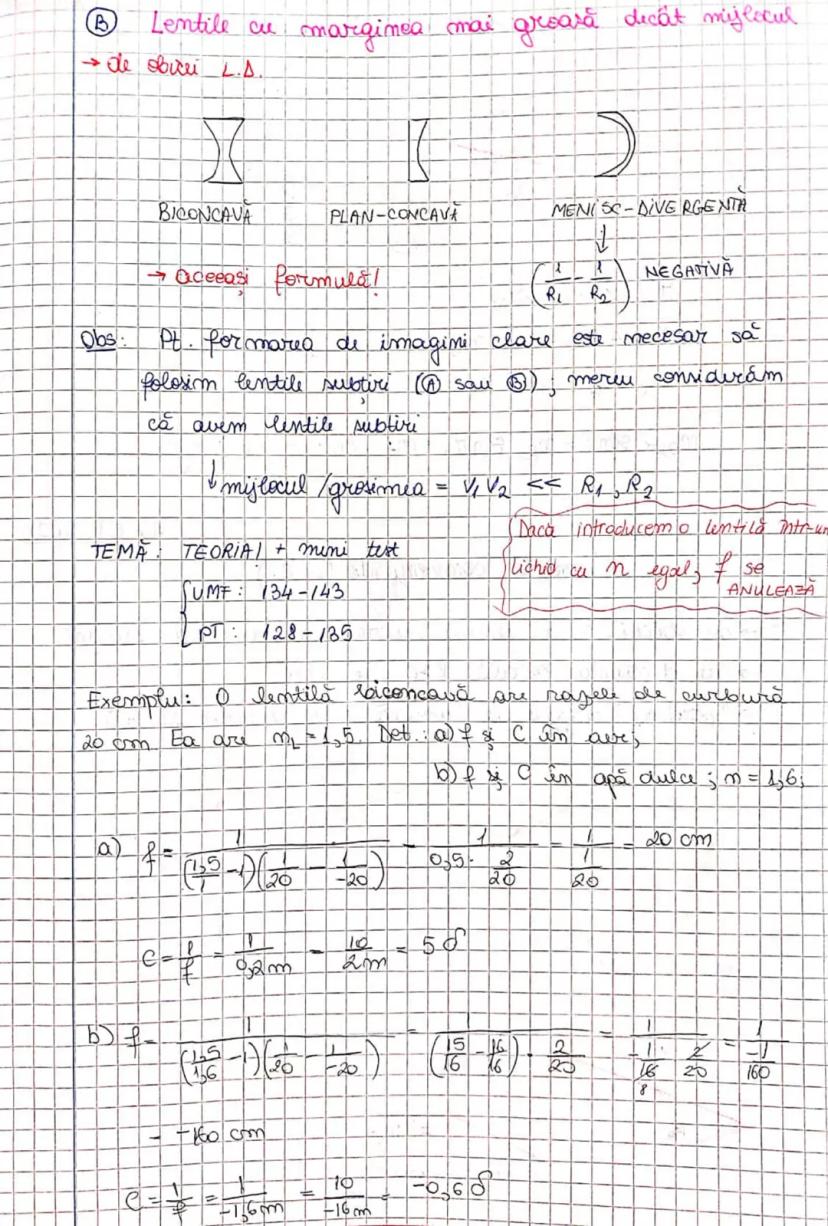 B Lentile cu marginea mai groasă decât mijlocul
→ de obicei L.D.
BICONCAVĂ PLAN-CONCAVĂ MENISC-DIVERGENTĂ
↓
→ aceeași formulă! (1/R1 - 1/R2) NEGATIVĂ
Obs: Pt. formarea de imagini clare este necesar să
folosim lentile subțiri (A sau B); mereu considerăm
că avem lentile subțiri
↓ mijlocul /grosimea = V1V2 << R1, R2
Dacă introducem o lentilă într-un
lichid cu n egal, f se
ANULEAZĂ
TEMĂ: TEORIA! + mini test
UMF: 134-143
PT: 128-135
Exemplu: O lentilă biconcavă are razele de curbură
20 cm. Ea are nL = 1,5. Det.: a) f și C în aer;
b) f și C în apă dulce; n = 1,6;
a) f = 1/((1,5/1 - 1)(1/20 - 1/-20)) = 1/(0,5 · 2/20) = 1/(1/20) = 20 cm
C = 1/f = 1/0,2m = 10/2m = 5 δ
b) f = 1/((1,5/1,6 - 1)(1/20 - 1/-20)) = 1/((15/16 - 16/16) · 2/20) = 1/(-1/16 · 2/20) = 1/(-1/160)
8
= -160 cm
C = 1/f = 1/-1,6m = 10/-16m = -0,6 δ